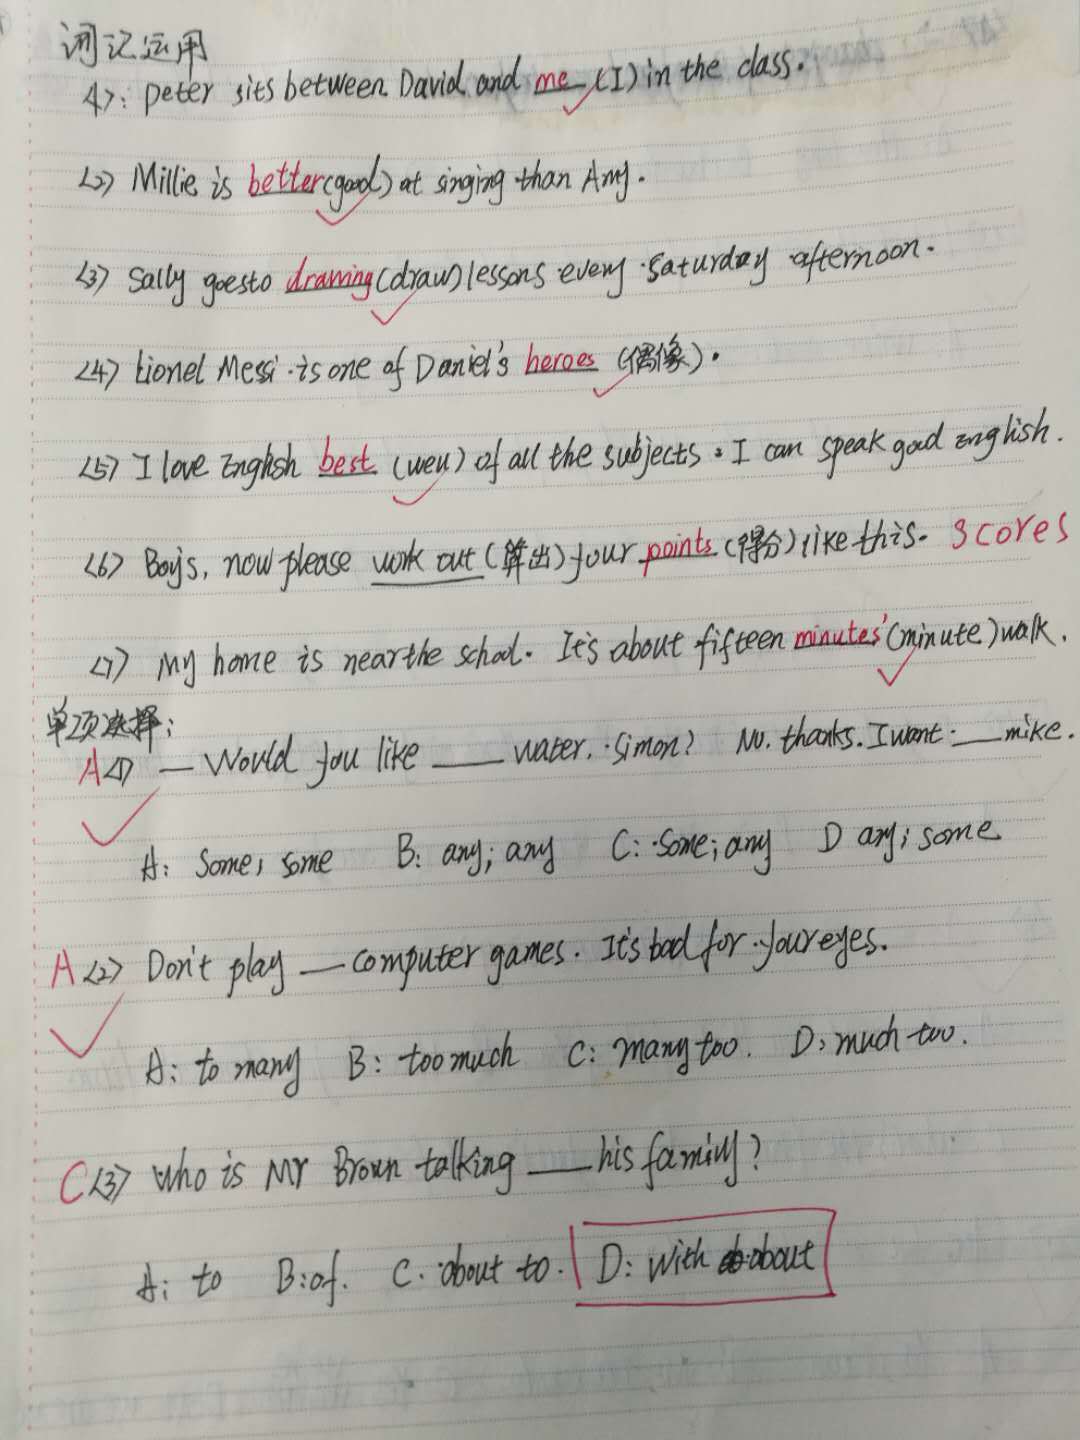 词汇运用
<1>: peter sits between David and me (I) in the class.
<2> Millie is better (good) at singing than Amy.
<3> Sally goes to drawing (draw) lessons every saturday afternoon.
<4> Lionel Messi is one of Daniel's heroes (偶像).
<5> I love English best (well) of all the subjects. I can speak good English.
<6> Boys, now please work out (算出) your points (得分) like this. scores
<7> My home is near the school. It's about fifteen minutes' (minute) walk.
单项选择:
A <1> — Would you like ____ water, Simon? No. thanks. I want ____ mike.
A: Some; some B: any; any C: Some; any D any; some
A <2> Don't play ____ computer games. It's bad for your eyes.
A: to many B: too much C: many too. D: much too.
C <3> Who is Mr Brown talking ____ his family?
A: to B: of. C: about to. D: with about